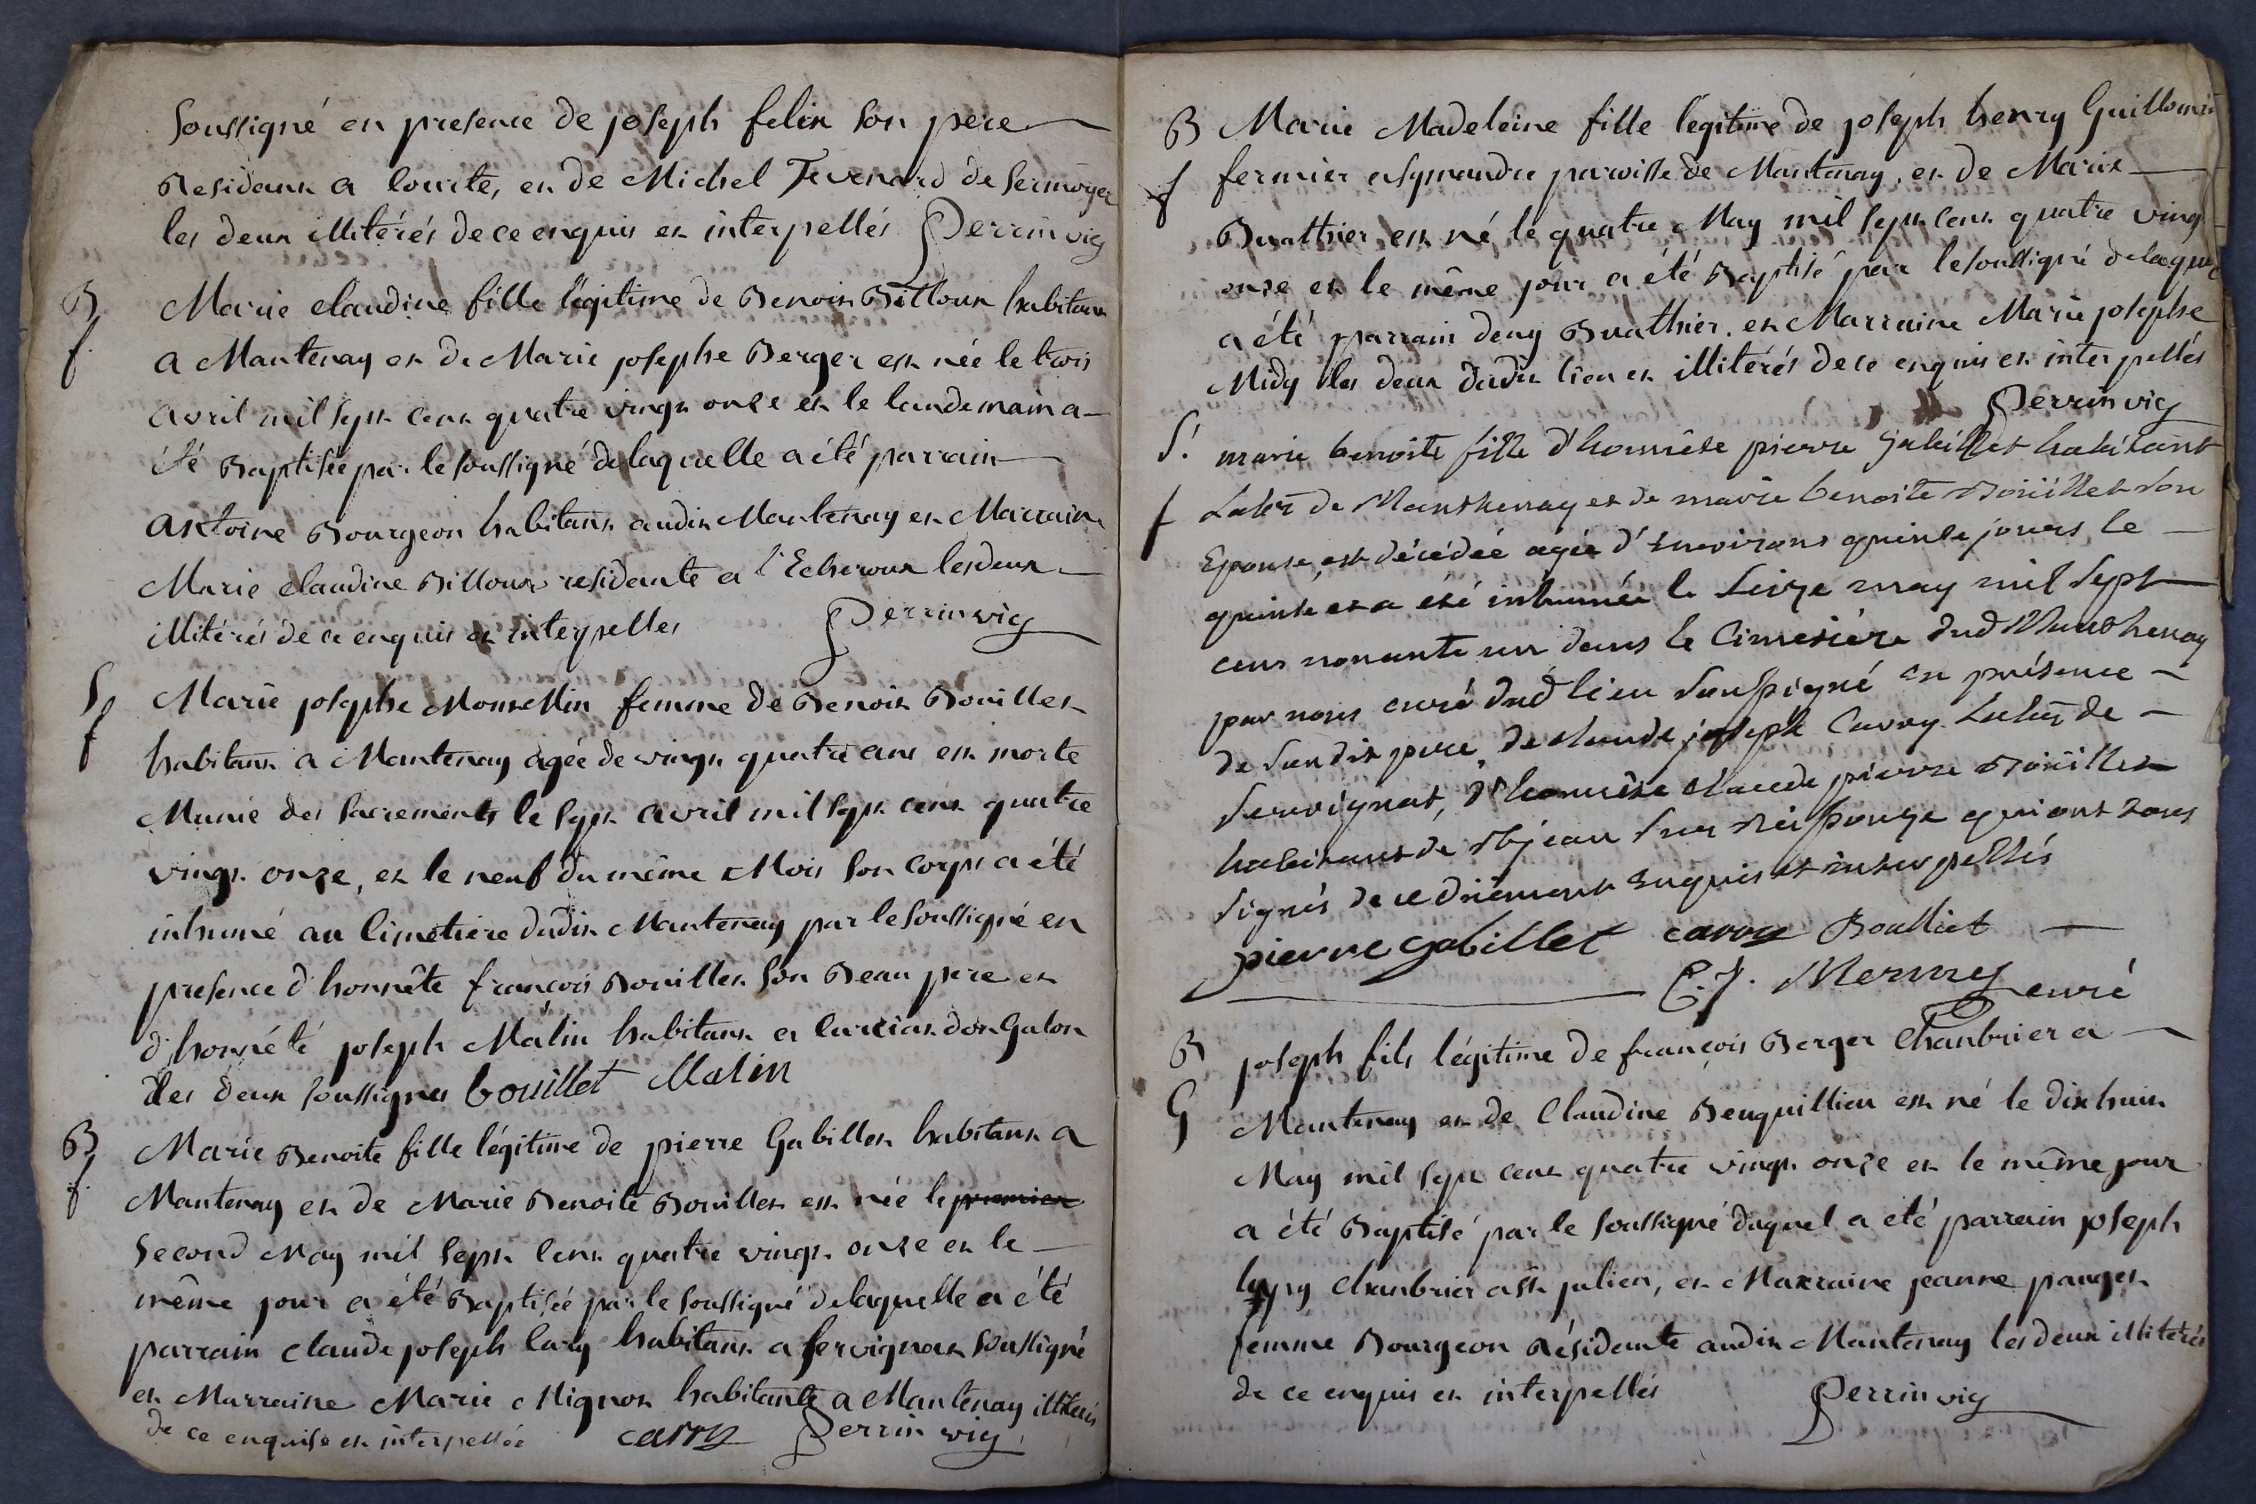 Soussigné en presence de joseph felix son pere
Residant a Courtes, et de Michel Tevenard de Sermoyer
les deux illitérés de ce enquis et interpellés Perrin vic
B Marie claudine fille légitime de Benoit Billoux habitant
f a Mantenay et de Marie josephe Berger est née le trois
avril mil sept cent quatre vingt onze et le landemain a
été Baptisée par le soussigné de laquelle a été parrain
Antoine Bourgeon habitant audit Mantenay et Marraine
Marie claudine Billoux residante a l'Echeroux les deux
illitérés de ce enquis et interpellés Perrin vic
S Marie josephe Monsellin femme de Benoit Bouillet
f habitant a Mantenay agée de vingt quatre ans est morte
Munie des sacrements le sept avril mil sept cent quatre
vingt onze, et le neuf du même Mois son corps a été
inhumé au Cimetiere dudit Mantenay par le soussigné en
presence d'honnête françois Bouillet son Beau pere et
d'honnête joseph Malin habitant
les deux soussignés bouillet Malin
B Marie Benoite fille légitime de pierre Gabillet habitant a
f Mantenay et de Marie Benoite Bouillet est née le premier
second May mil sept cent quatre vingt onze et le
même jour a été Baptisée par le soussigné de laquelle a été
parrain claude joseph Cary habitant a servignat soussigné
et Marraine Marie Mignot habitante a Mantenay illiterés
de ce enquise et interpellée carry Perrin vic
B Marie Madeleine fille légitime de joseph henry Guillomin
f fermier a Symandre parroisse de Mantenay, et de Marie
Buathier est né le quatre May mil sept cent quatre vingt
onze et le même jour a été Baptisé par le soussigné de laquelle
a été parrain deny Buathier, et Marraine Marie josephe
Midy les deux dudit lieu et illitérés de ce enquis et interpellés
Perrin vic
S. marie benoite fille d'honnête pierre gabillet habitant
f Labr de Manthenay et de marie benoite Boüillet son
Epouse, est décédée agée d'environs quinze jours, le
quinze et a été inhumée le seize may mil sept
cens nonante un dans le Cimetière dud Manthenay
par nous curé dud lieu soussigné en présence
de sondit pere, de claude joseph Carry Labr de
servignat, d'honnête claude pierre Boüillet
habitant de St jean sur Reissouze qui ont tous
signés de ce düement enquis et interpellés
pierre gabillet carry Boulliet
C. J. Mermey curé
B joseph fils légitime de françois Berger Chanbrier a
G Mantenay et de Claudine Benguillieu est né le dix huit
May mil sept cent quatre vingt onze et le même jour
a été Baptisé par le soussigné duquel a été parrain joseph
chanbrier a St julien, et Marraine jeanne panget
femme Bourgeon Résidante audit Mantenay les deux illiterés
de ce enquis et interpellés Perrin vic